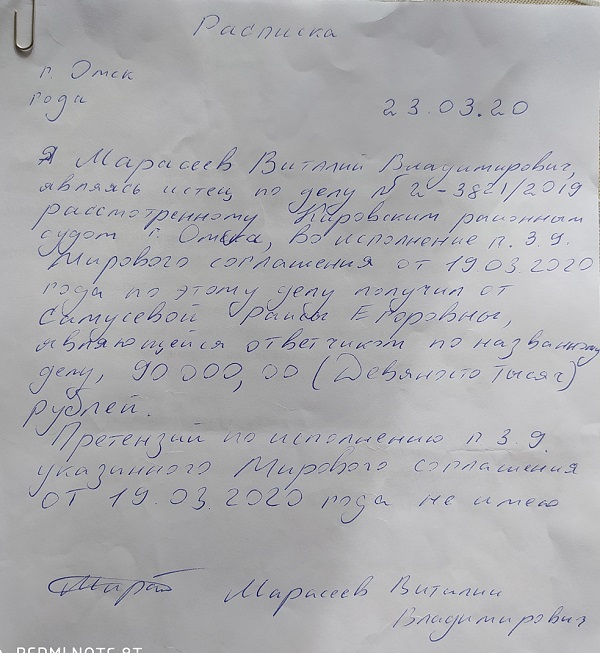 Расписка
г. Омск
года
23.03.20
Я Марасеев Виталий Владимирович,
являясь истец по делу N 2-3821/2019
рассмотренному Кировским районным
судом г. Омска, во исполнение п. 3.9.
Мирового соглашения от 19.03.2020
года по этому делу получил от
Самусевой Раисы Егоровны,
являющейся ответчиком по названному
делу, 90 000,00 (Девяносто Тысяч)
рублей.
Претензий по исполнению п 3.9.
указанного Мирового соглашения
ОТ 19.03.2020 года не имею
Марасеев Виталий
Владимирович
REDMI NOTE 8T